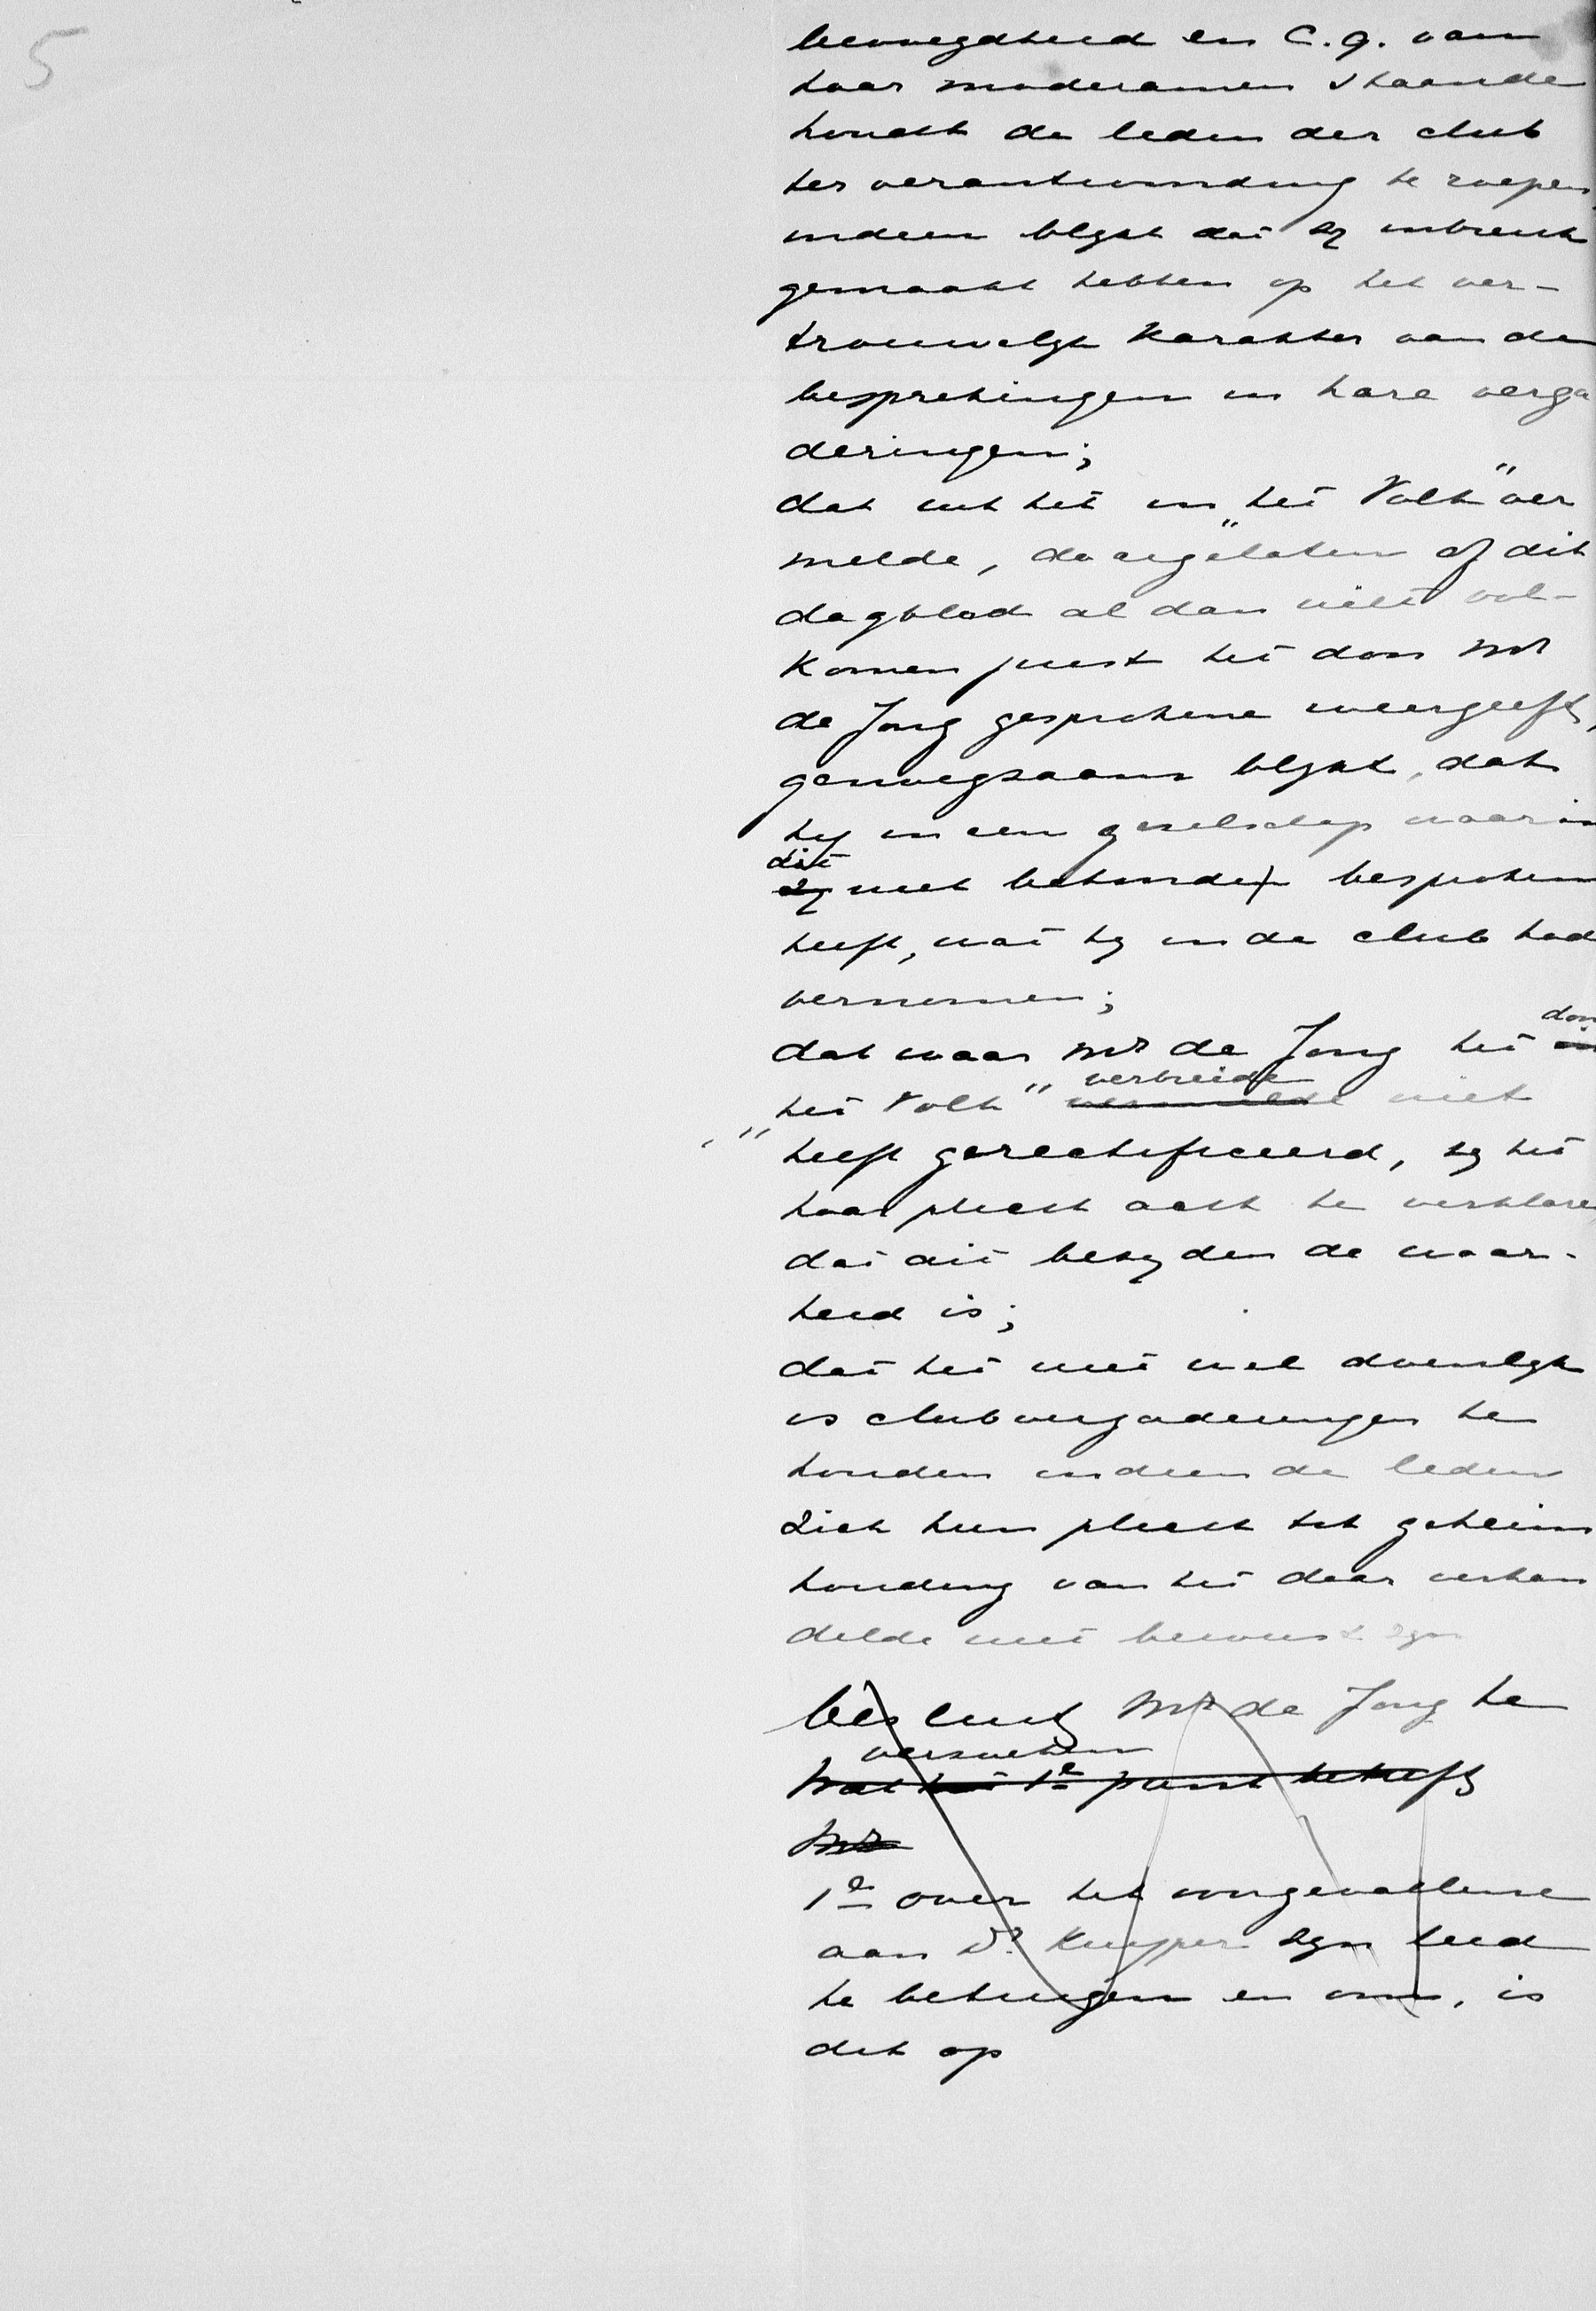 5
bevoegdheid en c.q. van
haar moderamen staande
houdt de leden der club
ter verantwoording te roepen,
indien blijkt dat zij inbreuk
gemaakt hebben op het ver-
trouwelijk karakter van de
besprekingen in hare verga
deringen;
dat uit het in "het Volk" ver
melde, daargelaten of dit
dagblad al dan niet vol-
komen juist het door Mr
de Jong gesprokene weergeeft,
genoegzaam blijkt, dat
hij in een gezelschap waarin
dit
zij niet behoorden besproken
heeft, wat hij in de club had
vernomen;
dat waar Mr de Jong het door
in
verbreide
"het Volk" vermelde niet
heeft gerectificeerd, zij het
haar plicht acht te verklaren
dat dit bezijden de waar-
heid is;
dat het niet wel doenlijk
is clubvergaderingen te
houden indien de leden
zich hun plicht tot geheim
houding van het daar verhan
delde niet bewust zijn
besluit Mr de Jong te
verzoeken
Wat het 1e punt betreft
Mr
1e over het voorgevallene
aan Dr Kuyper zijn leed
te betuigen en om, is
dit op